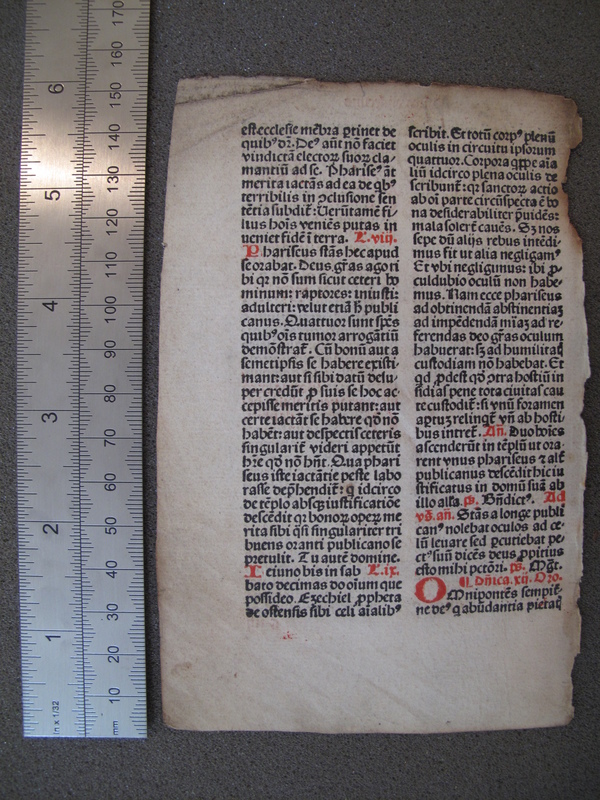 est ecclesie mēbra ꝑtinet de
quibꝰ dr̄. Deꝰ aūt nō faciet
vindictā electoꝝ suoꝝ cla-
mantiū ad se. Phariseꝰ āt
merita iactās ad ea de qbꝰ
terribilis in ꝯclusione sen
tētia subdit̄: Uerūtamē fi-
lius hoīs veniēs putas in
ueniet fidē ī terra. L. viij.
Phariseus stās hec apud
se orabat. Deus grās ago ti
bi qr nō sum sicut ceteri ho
minum: raptores: iniusti:
adulteri: velut etiā h̄ publi
canus. Quattuor sunt spēs
quibꝰ oīs tumor arrogātiū
demōstrat̄. Cū bonū aut a
semetipsis se habere existi-
mant: aut si sibi datū desu-
per credūt ꝓ suis se hoc ac-
cepisse meritis putant: aut
certe iactāt se habere qd̄ nō
habēt: aut despectis ceteris
singularit̄ videri appetūt
hr̄e qd̄ nō hn̄t. Qua phari
seus iste iactātie peste labo
rasse dep̄hendit̄: q idcirco
de tēplo absqꝫ iustificatiōe
descēdit qr bonoꝝ opeꝝ me
rita sibi q̄si singulariter tri
buens oranti publicano se
pretulit. Tu autē domine.
Ieiuno bis in sab L. ix.
bato decimas do oīum que
possideo. Ezechiel ꝓpheta
de ostensis sibi celi aīalibꝰ
scribit. Et totū corpꝰ plenū
oculis in circuitu ipsorum
quattuor. Corpora qꝑpe aīa
liū idcirco plena oculis de
scribunt̄: qr sanctoꝝ actio
ab oī parte circūspecta ē bo
na desiderabiliter ꝓuidēs:
mala solert̄ cauēs. Sꝫ nos
sepe dū alijs rebus intēdi-
mus fit ut alia negligamꝰ
Et vbi negligimus: ibi ꝓ-
culdubio oculū non habe-
mus. Nam ecce phariseus
ad obtinendā abstinentiaꝫ
ad impēdendā mīaꝫ ad re-
ferendas deo grās oculum
habuerat: sꝫ ad humilitatꝭ
custodiam nō habebat. Et
qd ꝓdest qd̄ ꝯtra hostiū in
sidias pene tota ciuitas cau
te custodit̄: si vnū foramen
aptuꝫ relinqt̄ vn̄ ab hosti
bus intret̄. An̄. Duo hoīes
ascenderūt in tēplū ut ora-
rent vnus phariseus ⁊ alt̄
publicanus descēdit hic iu
stificatus in domū suā ab
illo alīa. ps. Bn̄dictꝰ. Ad
vs̄. an̄. Stās a longe publi
canꝰ nolebat oculos ad ce-
lū leuare sed ꝑcutiebat pe-
ctꝰ suū dicēs deus ꝓpitius
esto mihi pctōri. ps. Mgt̄.
¶ Dn̄ica. xij. Oro.
Omnipotēs sempit̄-
ne deꝰ q abūdantia pietatꝭ